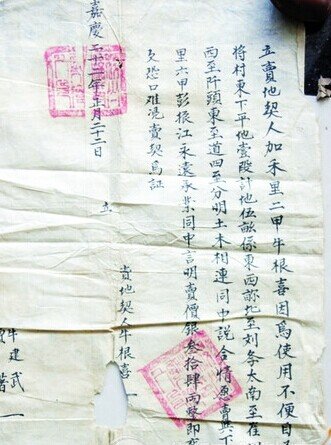 立賣地契人加禾里二甲牛根喜因爲使用不便自
將村東下平地壹段計地伍畝係東西畛北至刘 太南至
西至阡頭東至道四至分明土木相連同中説合情愿賣與下
里六甲彭根江永遠承業同中言明賣價銀叁拾肆兩整即
恐口难凴賣契爲証
嘉慶二十二年正月二十二日 立
賣地契人牛根喜
牛建武